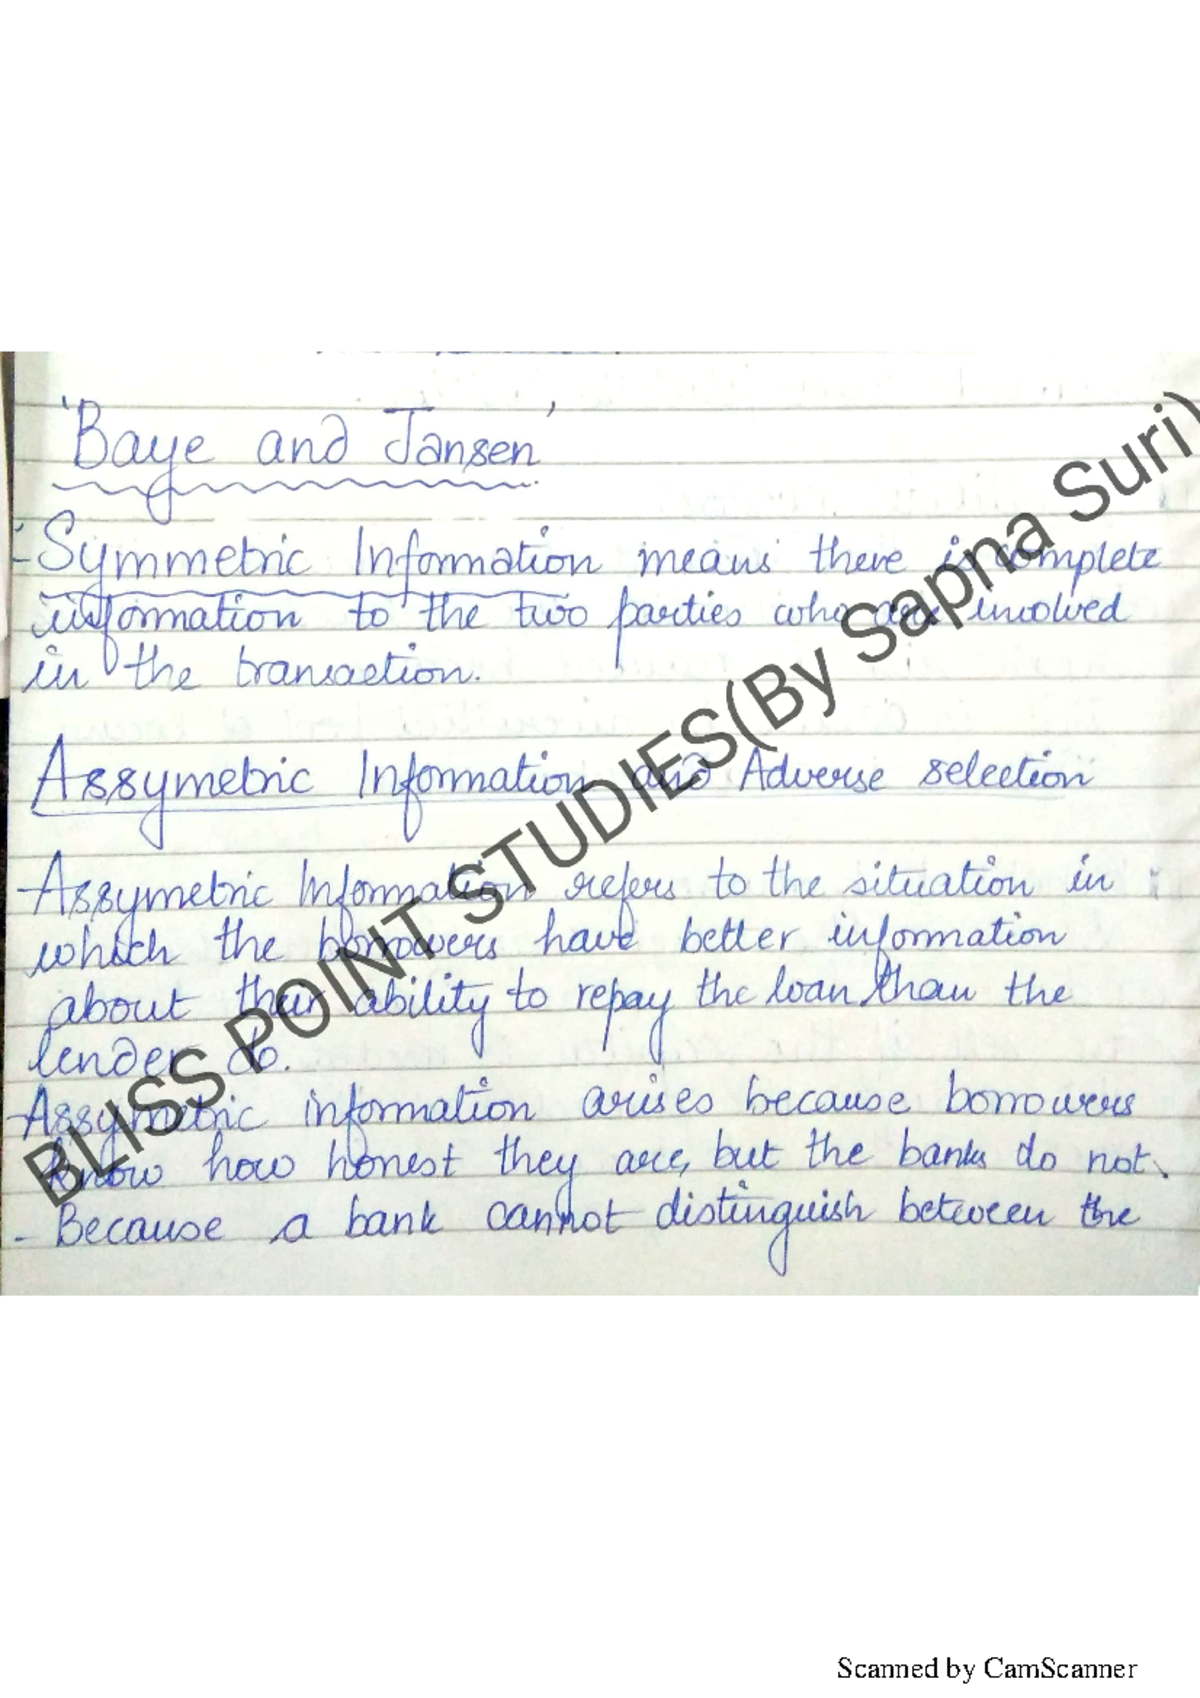 'Baye and Jansen'
- Symmetric Information means there is complete
information to the two parties who are involved
in the transaction.
Assymetric Information and Adverse selection
- Assymetric Information refers to the situation in
which the borrowers have better information
about their ability to repay the loan, than the
lender do.
- Assymetric information arises because borrowers
know how honest they are, but the banks do not.
- Because a bank cannot distinguish between the
BLISS POINT STUDIES(By Sapna Suri)
Scanned by CamScanner